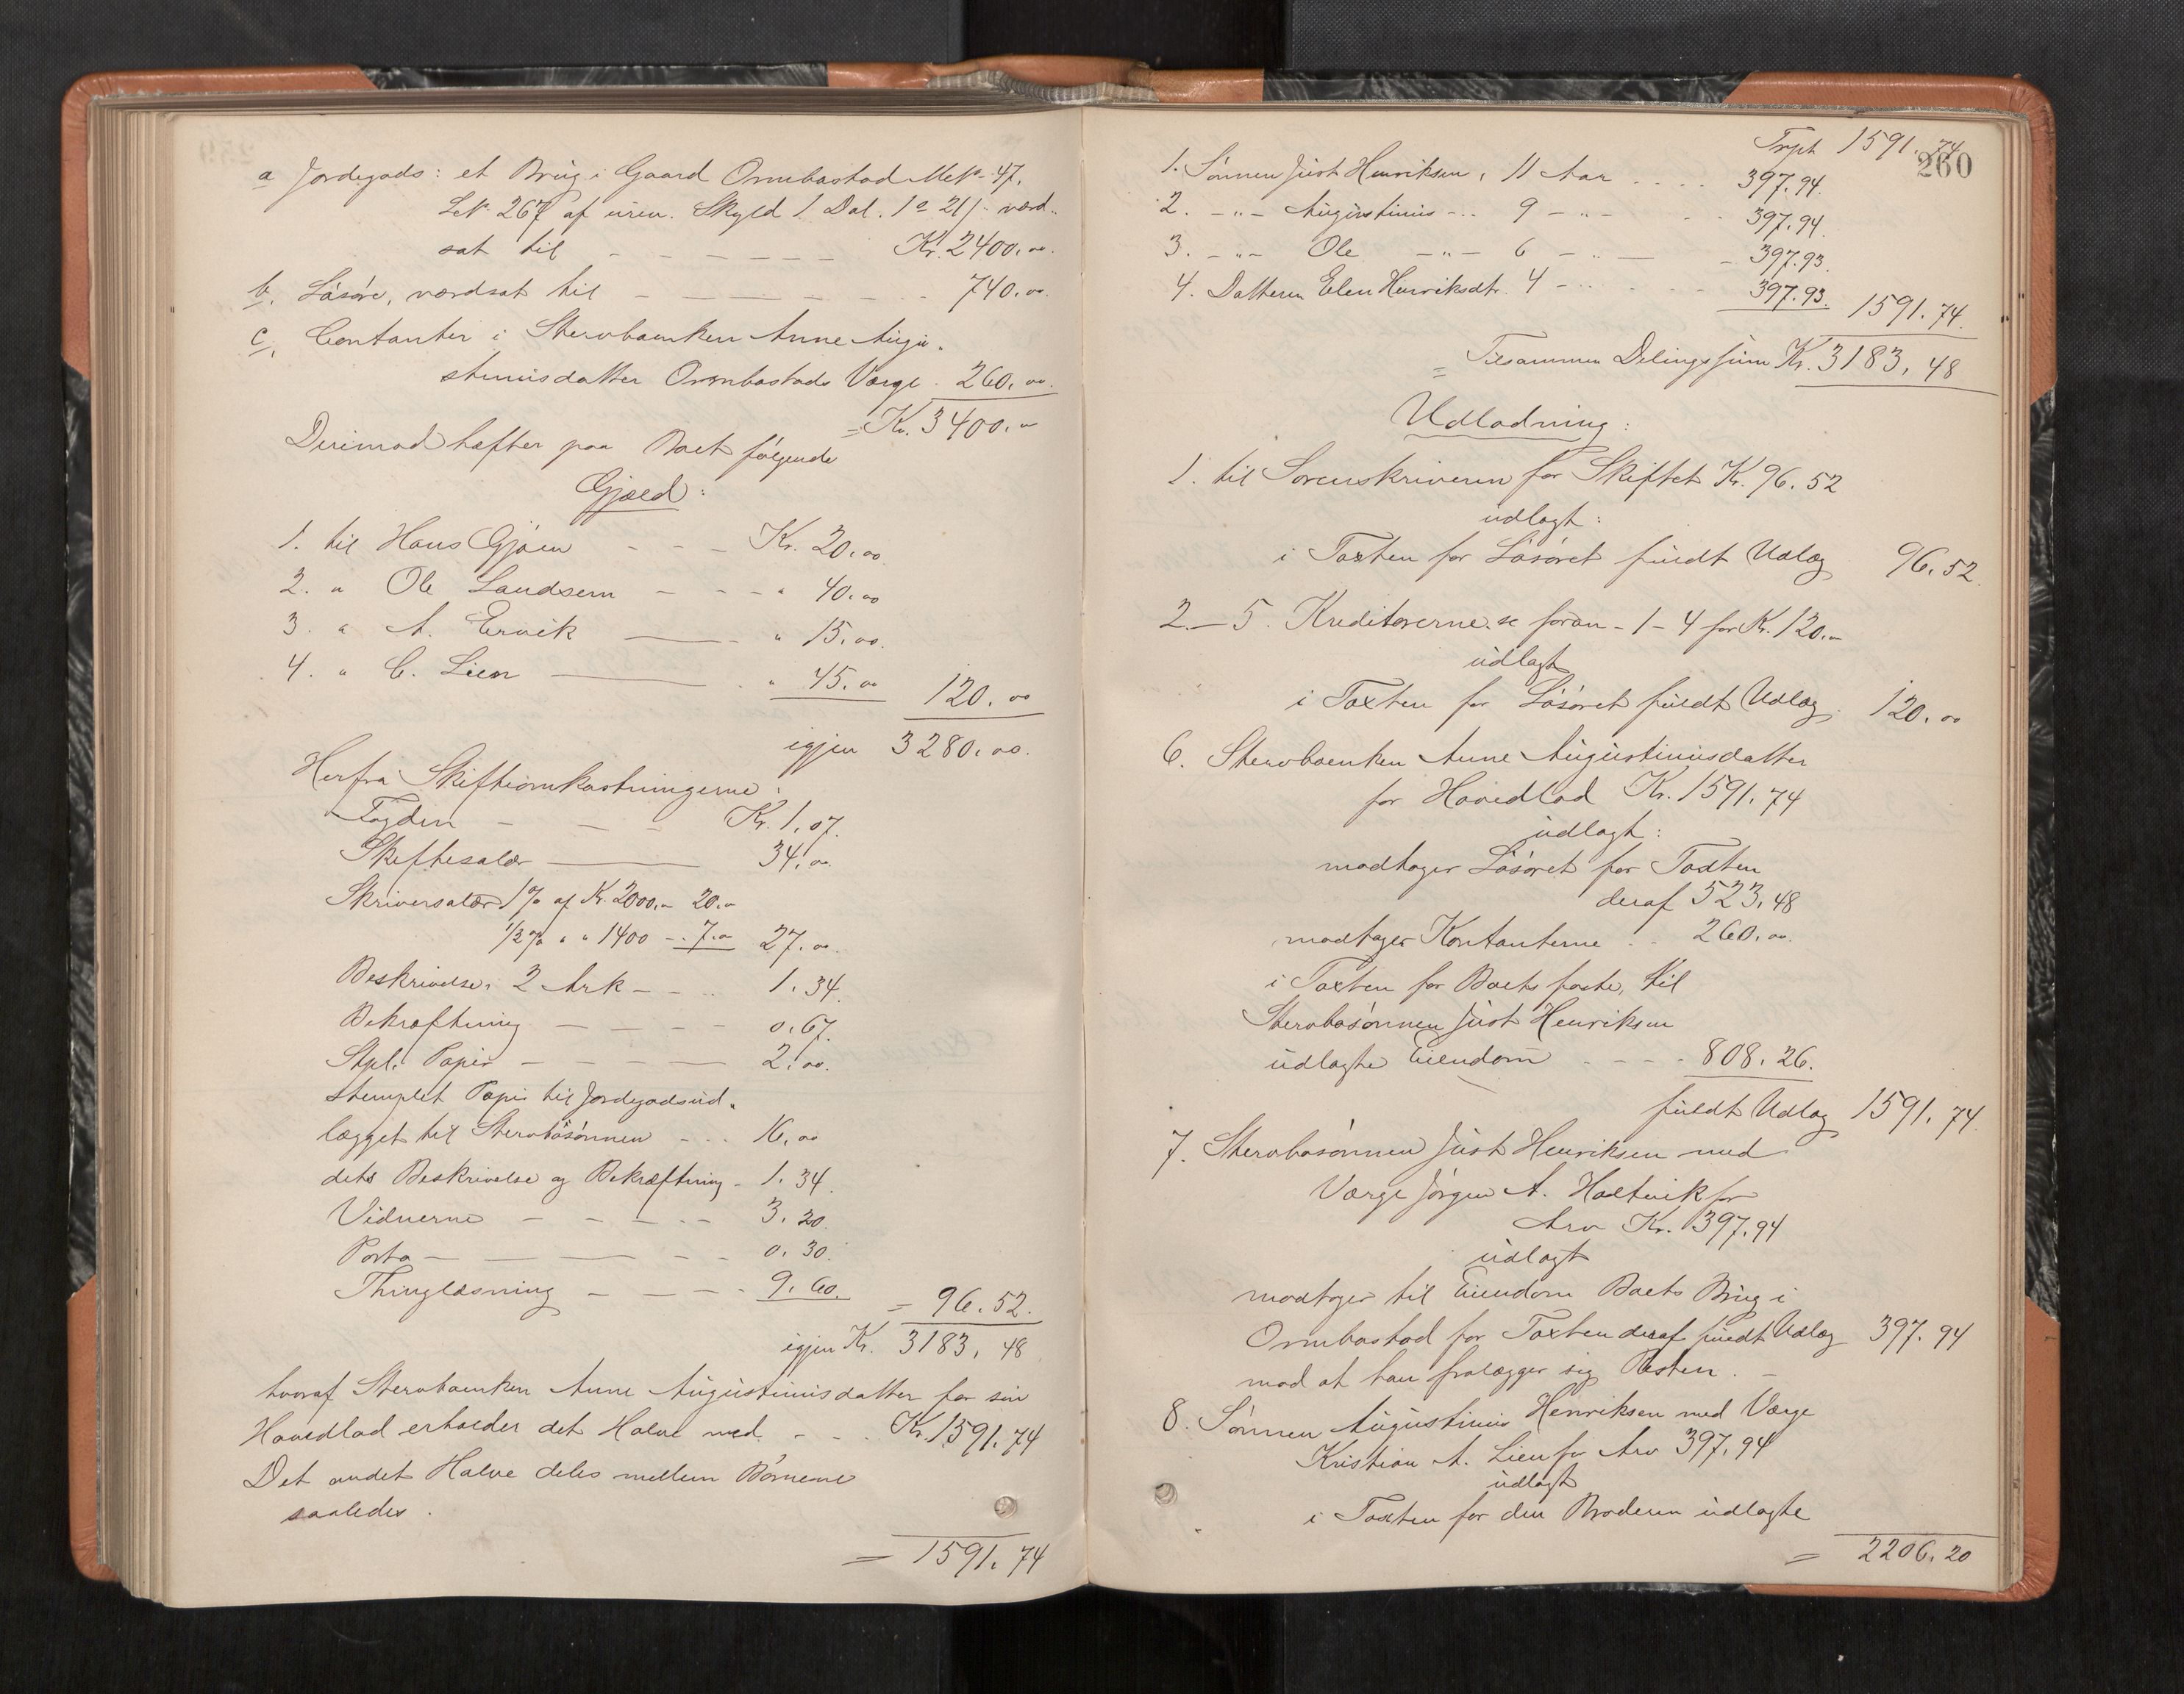 a Jordegods: et Brug i Gaard Ormbostad M.N. 47,
L.N. 267 af uren. Skyld 1 Dal. 1 o 21 s. værd-
sat til Kr. 2400.00.
b. Løsøre, værdsat til 740.00.
c. Contanter i Stervboenken Anne Augu-
stinusdatter Ormbostads Værge 260.00.
= Kr. 3400.00
Derimod hæfter paa Boet følgende
Gjæld:
1. til Hans Gjøen Kr. 20.00
2. " Ole Landsem " 40.00
3. " A. Ervik " 15.00.
4. " C. Lien " 45.00 120.00
igjen 3280.00.
Herfra Skifteomkostningerne:
Fogden Kr. 1.07.
Skiftesalær 34.00
Skriversalær 1% af Kr. 2000.00 20.00
1/2 % " " 1400 - 7.00 27.00.
Beskrivelse, 2 Ark 1.34.
Bekræftning 0.67.
Stpl. Papir 2.00.
stemplet Papir til Jordegodsud-
lægget til Stervbosønnen 16.00
dets Beskrivelse og Bekræftning - 1.34.
Vidnerne 3.20.
Porto 0.30.
Thinglæsning 9.60.
= 96.52.
igjen Kr. 3183.48
hvoraf Stervboenken Anne Augustinusdatter for sin
Hovedlod erholder det Halve med Kr. 1591.74
Det andet Halve deles mellem Børnene
saaledes.
= 1591.74
260
Trpt 1591.74
1. Sønnen Just Henriksen, 11 Aar 397.94.
2. -"- Augustinus -"- 9 -"- 397.94.
3. -"- Ole -"- 6 -"- 397.93.
4. Datteren Elen Henriksdtr. 4 -"- 397.93. 1591.74.
= Tilsammen Delingssum Kr. 3183.48
Udlodning:
1. til Sorenskriveren for Skiftet Kr. 96.52
udlagt:
i Taxten for Løsøret fuldt Udlæg 96.52.
2.-5. Kreditorerne se foran - 1-4 for Kr. 120.00
udlagt
i Taxten for Løsøret fuldt Udlæg 120.00
6. Stervboenken Anne Augustinusdatter
for Hovedlod Kr. 1591.74
udlagt:
modtager Løsøret for Taxten
deraf 523.48
modtager Kontanterne 260.00.
i Taxten for Boets faste, til
Stervbosønnen Just Henriksen
udlagte Eiendom 808.26.
fuldt Udlæg 1591.74.
7. Stervbosønnen Just Henriksen med
Værge Jørgen A. Holtvik for
Arv Kr. 397.94
udlagt
modtager til Eiendom Boets Brug i
Ormbostad for Taxten deraf fuldt Udlæg 397.94
mod at han fralægger sig Resten.
8. Sønnen Augustinus Henriksen med Værge
Kristian A. Lien for Arv 397.94
udlagt
i Taxten for den Broderen udlagte
= 2206.20